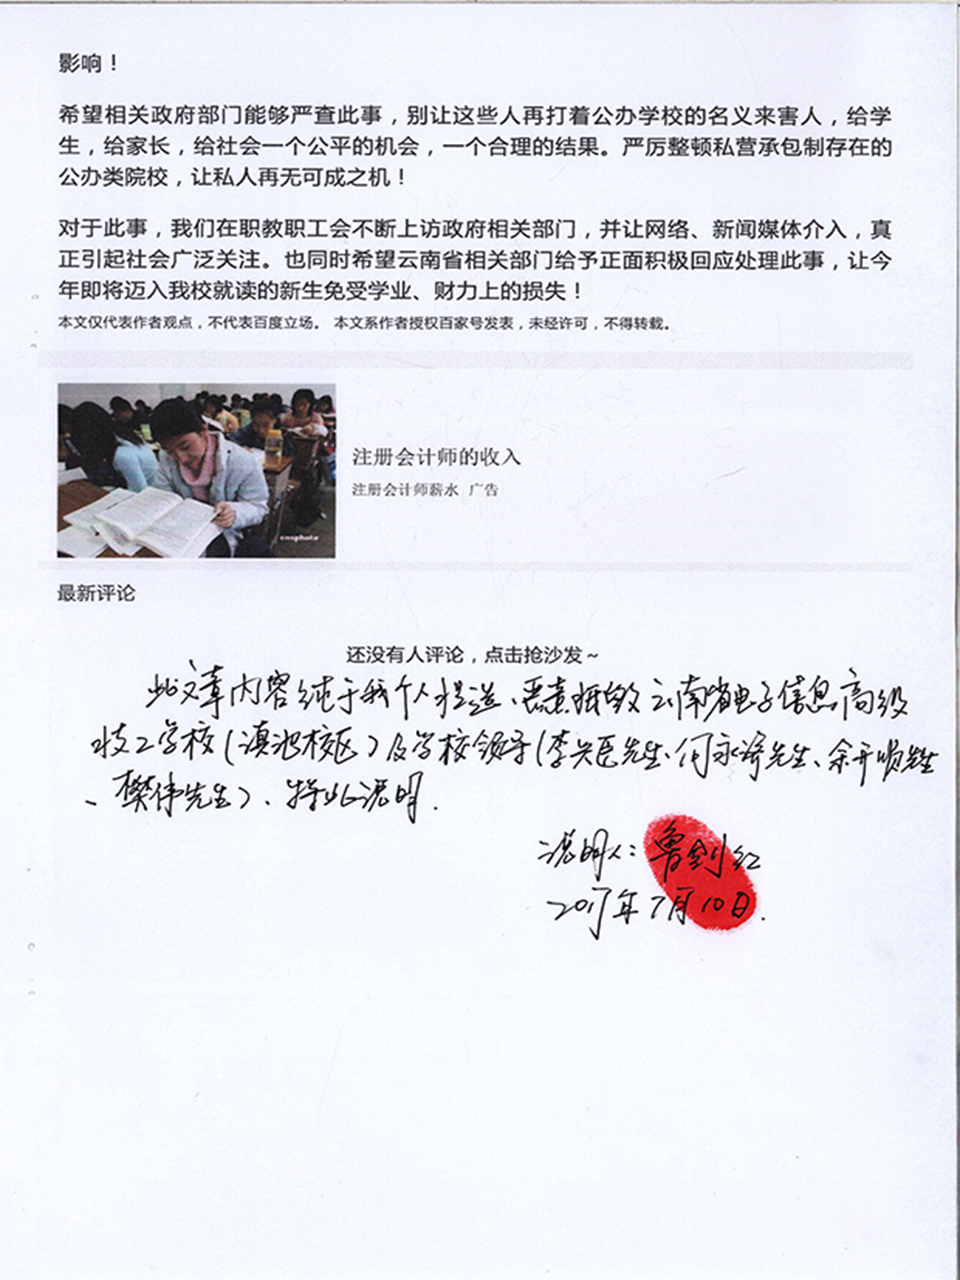 影响！
希望相关政府部门能够严查此事，别让这些人再打着公办学校的名义来害人，给学
生，给家长，给社会一个公平的机会，一个合理的结果。严厉整顿私营承包制存在的
公办类院校，让私人再无可成之机！
对于此事，我们在职教职工会不断上访政府相关部门，并让网络、新闻媒体介入，真
正引起社会广泛关注。也同时希望云南省相关部门给予正面积极回应处理此事，让今
年即将迈入我校就读的新生免受学业、财力上的损失！
本文仅代表作者观点，不代表百度立场。 本文系作者授权百家号发表，未经许可，不得转载。
cnsphoto
注册会计师的收入
注册会计师薪水 广告
最新评论
还没有人评论，点击抢沙发~
此文章内容纯于我个人捏造、恶意抵毁云南省电子信息高级
技工学校（滇池校区）及学校领导（李兴医先生、何永 先生、余开 先生
、樊伟先生）、特此说明.
说明人：鲁剑红
2017年7月10日.